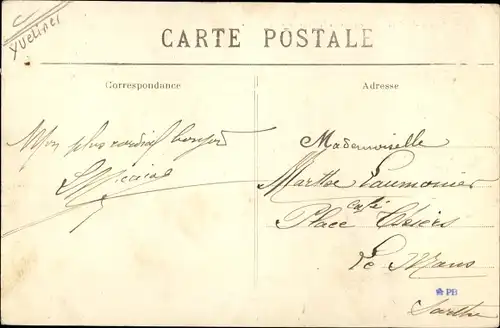 Yvelines
CARTE POSTALE
Correspondance
Adresse
Mon plus cordial bonjour
Mademoiselle
Marthe Laumonier
Café
Place Thiers
Le Mans
PB
Sarthe